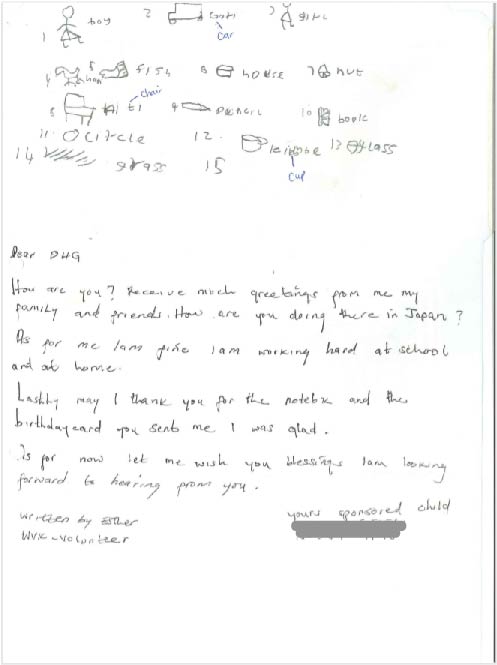 1 boy 2 3 girl
car
4 5 fish 6 house 7 hut
chair
8 9 pencil 10 book
11 circle 12. 13 glass
cup
14 grass 15
Dear DHG
How are you? Receive much greetings from me my
family and friends. How are you doing there in Japan?
As for me Iam fine Iam working hard at school
and at home.
Lastly may I thank you for the notebk and the
birthdaycard you sent me I was glad.
As for now let me wish you blessings Iam looking
forward to hearing from you.
yours sponsored child
written by Esther
WVK-volunteer